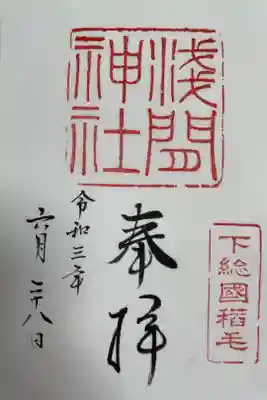 下総國稲毛
浅間
神社
奉拝
令和三年
六月二十八日